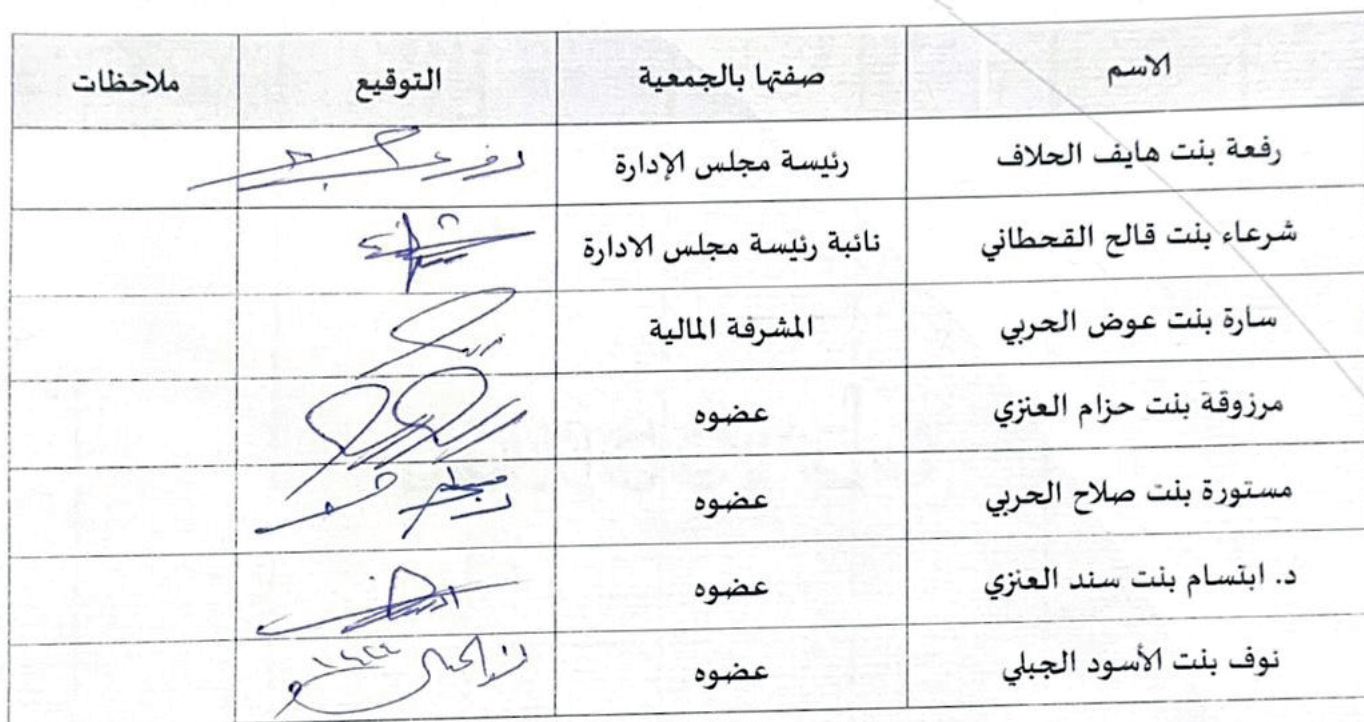 الاسم صفتها بالجمعية التوقيع ملاحظات
رفعة بنت هايف الحلاف رئيسة مجلس الإدارة
شرعاء بنت قالح القحطاني نائبة رئيسة مجلس الادارة
سارة بنت عوض الحربي المشرفة المالية
مرزوقة بنت حزام العنزي عضوه
مستورة بنت صلاح الحربي عضوه
د. ابتسام بنت سند العنزي عضوه
نوف بنت الأسود الجبلي عضوه